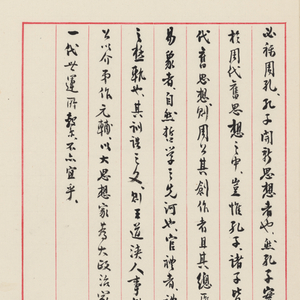 必稱周孔,孔子開新思想者也,然孔子實
於周代舊思想之中,豈惟孔子,諸子皆
代舊思想,則周公其創作者且其總
易象者,自然哲學之先河也,官禮者,禮
之極軌也,其訓誥之文,則王道浹人事
公以介弟作元輔,以大思想家兼大政治家
一代世運所繫,不亦宜乎。